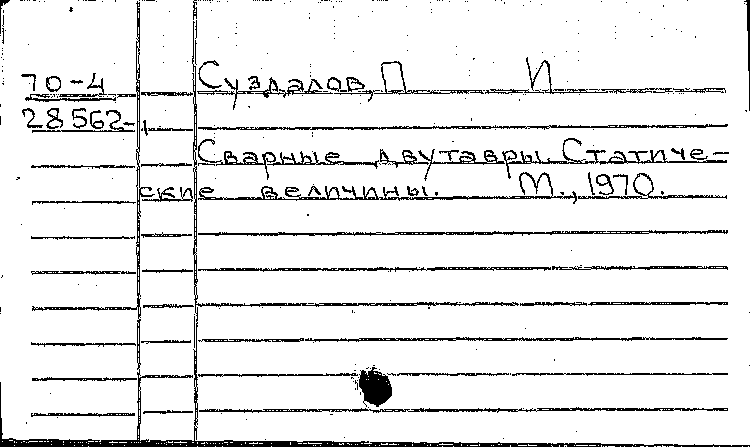 70-4 Суздалов, П И
28562-
Сварные двутавры. Статиче-
ские величины. М., 1970.